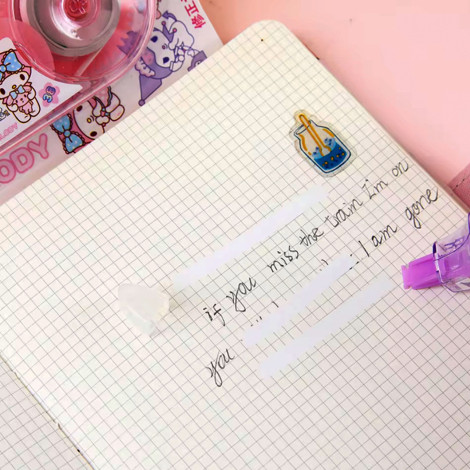 修正
ODY
if you miss the train I'm on
you I am gone